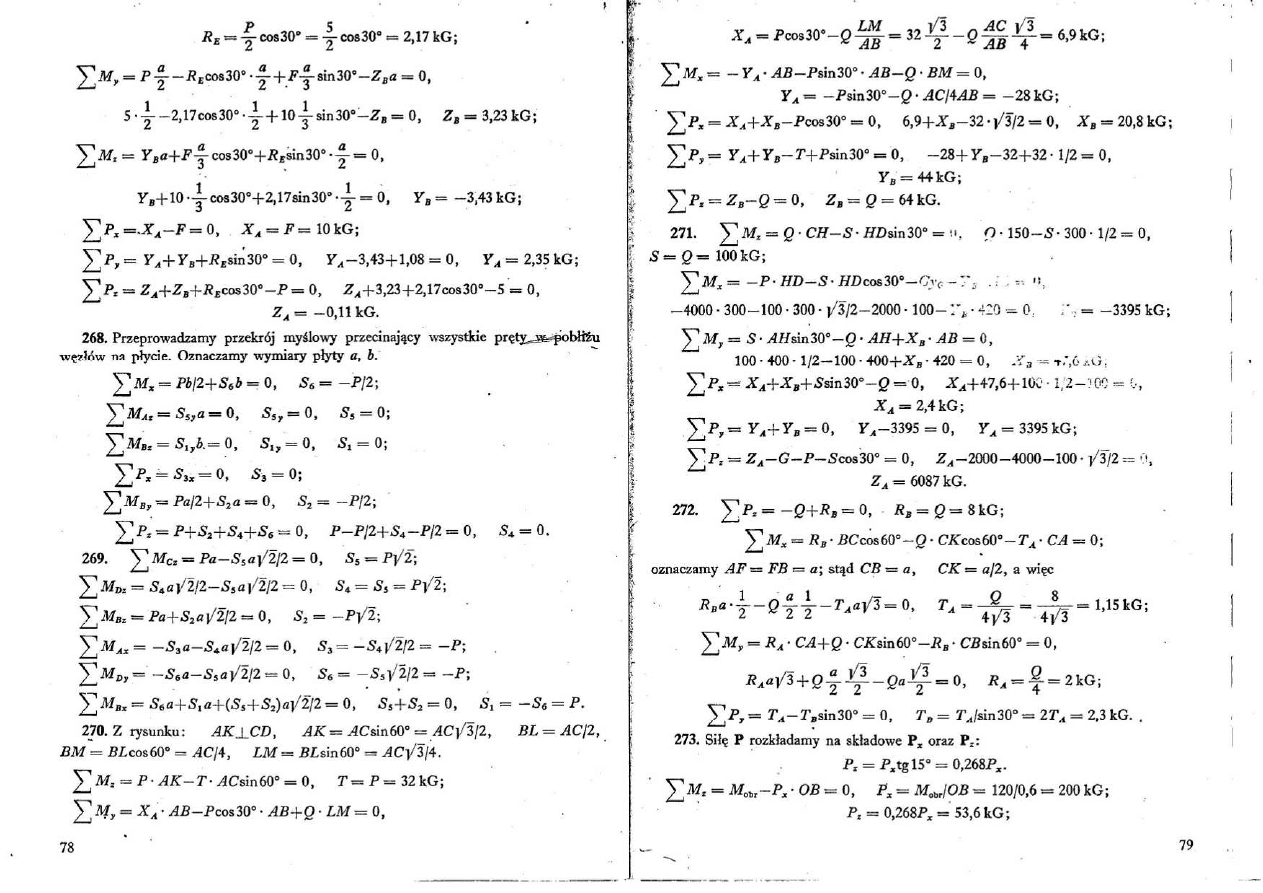 R_E = P/2 cos30° = 5/2 cos30° = 2,17 kG;
∑M_y = P a/2 −R_E cos30° · a/2 +F a/3 sin30°−Z_B a = 0,
5 · 1/2 −2,17cos30° · 1/2 +10 1/3 sin30°−Z_B = 0, Z_B = 3,23 kG;
∑M_z = Y_B a+F a/3 cos30°+R_E sin30° · a/2 = 0,
Y_B+10 · 1/3 cos30°+2,17sin30° · 1/2 = 0, Y_B = −3,43 kG;
∑P_x = X_A−F = 0, X_A = F = 10 kG;
∑P_y = Y_A+Y_B+R_E sin30° = 0, Y_A−3,43+1,08 = 0, Y_A = 2,35 kG;
∑P_z = Z_A+Z_B+R_E cos30°−P = 0, Z_A+3,23+2,17cos30°−5 = 0,
Z_A = −0,11 kG.
268. Przeprowadzamy przekrój myślowy przecinający wszystkie pręty w pobliżu
węzłów na płycie. Oznaczamy wymiary płyty a, b.
∑M_x = Pb/2+S₆b = 0, S₆ = −P/2;
∑M_Az = S_5y a = 0, S_5y = 0, S₅ = 0;
∑M_Bz = S_1y b = 0, S_1y = 0, S₁ = 0;
∑P_x = S_3x = 0, S₃ = 0;
∑M_By = Pa/2+S₂a = 0, S₂ = −P/2;
∑P_z = P+S₂+S₄+S₆ = 0, P−P/2+S₄−P/2 = 0, S₄ = 0.
269. ∑M_Cz = Pa−S₅a√2/2 = 0, S₅ = P√2;
∑M_Dz = S₄a√2/2−S₅a√2/2 = 0, S₄ = S₅ = P√2;
∑M_Bz = Pa+S₂a√2/2 = 0, S₂ = −P√2;
∑M_Ax = −S₃a−S₄a√2/2 = 0, S₃ = −S₄√2/2 = −P;
∑M_Dy = −S₆a−S₅a√2/2 = 0, S₆ = −S₅√2/2 = −P;
∑M_Bx = S₆a+S₁a+(S₅+S₂)a√2/2 = 0, S₅+S₂ = 0, S₁ = −S₆ = P.
270. Z rysunku: AK⊥CD, AK = ACsin60° = AC√3/2, BL = AC/2,
BM = BLcos60° = AC/4, LM = BLsin60° = AC√3/4.
∑M_z = P · AK−T · ACsin60° = 0, T = P = 32 kG;
∑M_y = X_A · AB−Pcos30° · AB+Q · LM = 0,
78
X_A = Pcos30°−Q LM/AB = 32 √3/2 −Q AC/AB √3/4 = 6,9 kG;
∑M_x = −Y_A · AB−Psin30° · AB−Q · BM = 0,
Y_A = −Psin30°−Q · AC/4AB = −28 kG;
∑P_x = X_A+X_B−Pcos30° = 0, 6,9+X_B−32 · √3/2 = 0, X_B = 20,8 kG;
∑P_y = Y_A+Y_B−T+Psin30° = 0, −28+Y_B−32+32 · 1/2 = 0,
Y_B = 44 kG;
∑P_z = Z_B−Q = 0, Z_B = Q = 64 kG.
271. ∑M_z = Q · CH−S · HDsin30° = 0, Q · 150−S · 300 · 1/2 = 0,
S = Q = 100 kG;
∑M_x = −P · HD−S · HDcos30°−
−4000 · 300−100 · 300 · √3/2−2000 · 100− · 420 = 0, = −3395 kG;
∑M_y = S · AHsin30°−Q · AH+X_B · AB = 0,
100 · 400 · 1/2−100 · 400+X_B · 420 = 0,
∑P_x = X_A+X_B+Ssin30°−Q = 0, X_A+47,6+100 · 1/2−100 = 0,
X_A = 2,4 kG;
∑P_y = Y_A+Y_B = 0, Y_A−3395 = 0, Y_A = 3395 kG;
∑P_z = Z_A−G−P−Scos30° = 0, Z_A−2000−4000−100 · √3/2 = 0,
Z_A = 6087 kG.
272. ∑P_z = −Q+R_B = 0, R_B = Q = 8 kG;
∑M_x = R_B · BCcos60°−Q · CKcos60°−T_A · CA = 0;
oznaczamy AF = FB = a; stąd CB = a, CK = a/2, a więc
R_B a · 1/2 −Q a/2 1/2 −T_A a√3 = 0, T_A = Q/4√3 = 8/4√3 = 1,15 kG;
∑M_y = R_A · CA+Q · CKsin60°−R_B · CBsin60° = 0,
R_A a√3+Q a/2 √3/2 −Qa √3/2 = 0, R_A = Q/4 = 2 kG;
∑P_y = T_A−T_B sin30° = 0, T_B = T_A/sin30° = 2T_A = 2,3 kG.
273. Siłę P rozkładamy na składowe P_x oraz P_z:
P_z = P_x tg15° = 0,268P_x.
∑M_z = M_obr−P_x · OB = 0, P_x = M_obr/OB = 120/0,6 = 200 kG;
P_z = 0,268P_x = 53,6 kG;
79